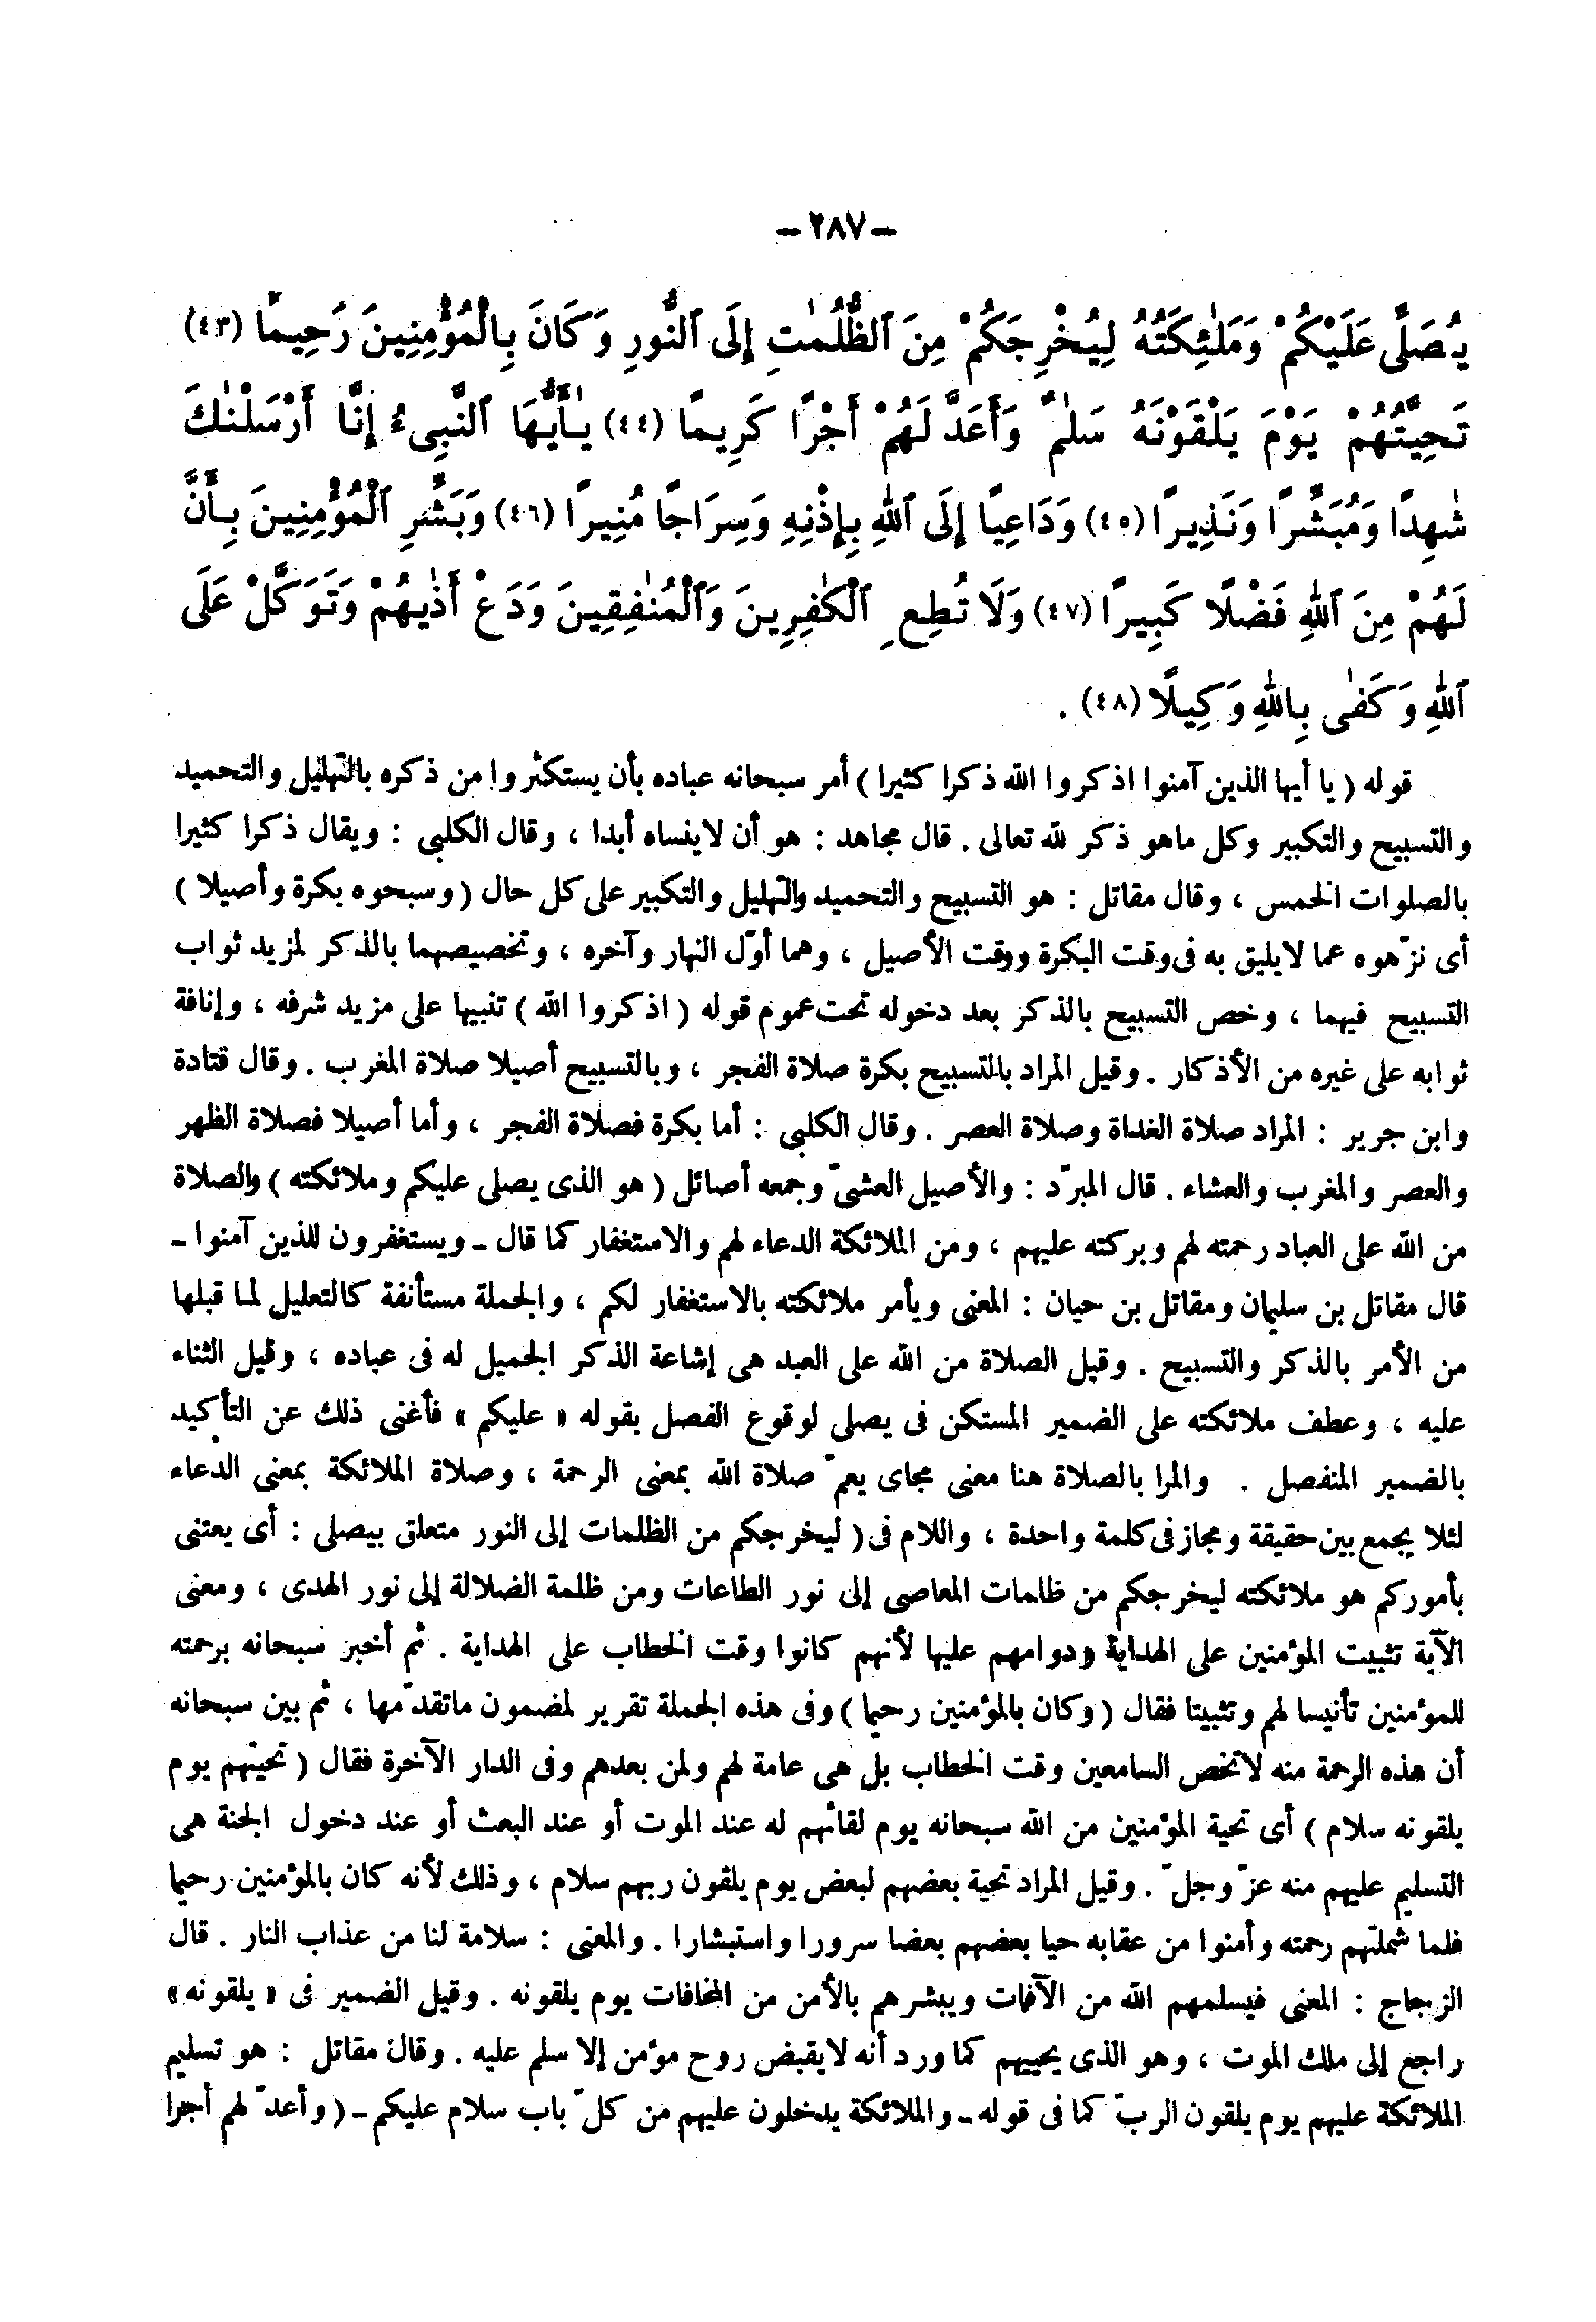 — ٢٨٧ —
يُصَلِّى عَلَيْكُمْ وَمَلَٰئِكَتُهُ لِيُخْرِجَكُمْ مِنَ ٱلظُّلُمَٰتِ إِلَى ٱلنُّورِ وَكَانَ بِالْمُؤْمِنِينَ رَحِيمًا (٤٣)
تَحِيَّتُهُمْ يَوْمَ يَلْقَوْنَهُ سَلَٰمٌ وَأَعَدَّ لَهُمْ أَجْرًا كَرِيمًا (٤٤) يَٰأَيُّهَا ٱلنَّبِىءُ إِنَّا أَرْسَلْنَٰكَ
شَٰهِدًا وَمُبَشِّرًا وَنَذِيرًا (٤٥) وَدَاعِيًا إِلَى ٱللهِ بِإِذْنِهِ وَسِرَاجًا مُنِيرًا (٤٦) وَبَشِّرِ ٱلْمُؤْمِنِينَ بِأَنَّ
لَهُمْ مِنَ ٱللهِ فَضْلًا كَبِيرًا (٤٧) وَلَا تُطِعِ ٱلْكَٰفِرِينَ وَٱلْمُنَٰفِقِينَ وَدَعْ أَذَٰيهُمْ وَتَوَكَّلْ عَلَى
ٱللهِ وَكَفَىٰ بِاللهِ وَكِيلًا (٤٨) .
قوله ( يا أيها الذين آمنوا اذكروا الله ذكرا كثيرا ) أمر سبحانه عباده بأن يستكثروا من ذكره بالتهليل والتحميد
والتسبيح والتكبير وكل ماهو ذكر لله تعالى . قال مجاهد : هو أن لاينساه أبدا ، وقال الكلبى : ويقال ذكرا كثيرا
بالصلوات الخمس ، وقال مقاتل : هو التسبيح والتحميد والتهليل والتكبير على كل حال ( وسبحوه بكرة وأصيلا )
أى نزّهوه عما لايليق به فى وقت البكرة ووقت الأصيل ، وهما أوّل النهار وآخره ، وتخصيصهما بالذكر لمزيد ثواب
التسبيح فيهما ، وخص التسبيح بالذكر بعد دخوله تحت عموم قوله ( اذكروا الله ) تنبيها على مزيد شرفه ، وإنافة
ثوابه على غيره من الأذكار . وقيل المراد بالتسبيح بكرة صلاة الفجر ، وبالتسبيح أصيلا صلاة المغرب . وقال قتادة
وابن جرير : المراد صلاة الغداة وصلاة العصر . وقال الكلبى : أما بكرة فصلاة الفجر ، وأما أصيلا فصلاة الظهر
والعصر والمغرب والعشاء . قال المبرّد : والأصيل العشىّ وجمعه أصائل ( هو الذى يصلى عليكم وملائكته ) والصلاة
من الله على العباد رحمته لهم وبركته عليهم ، ومن الملائكة الدعاء لهم والاستغفار كما قال ـ ويستغفرون للذين آمنوا ـ
قال مقاتل بن سليمان ومقاتل بن حيان : المعنى ويأمر ملائكته بالاستغفار لكم ، والجملة مستأنفة كالتعليل لما قبلها
من الأمر بالذكر والتسبيح . وقيل الصلاة من الله على العبد هى إشاعة الذكر الجميل له فى عباده ، وقيل الثناء
عليه ، وعطف ملائكته على الضمير المستكن فى يصلى لوقوع الفصل بقوله « عليكم » فأغنى ذلك عن التأكيد
بالضمير المنفصل . والمرا بالصلاة هنا معنى مجاى يعمّ صلاة الله بمعنى الرحمة ، وصلاة الملائكة بمعنى الدعاء
لئلا يجمع بين حقيقة ومجاز فى كلمة واحدة ، واللام فى ( ليخرجكم من الظلمات إلى النور متعلق بيصلى : أى يعتنى
بأموركم هو ملائكته ليخرجكم من ظلمات المعاصى إلى نور الطاعات ومن ظلمة الضلالة إلى نور الهدى ، ومعنى
الآية تثبيت المؤمنين على الهداية ودوامهم عليها لأنهم كانوا وقت الخطاب على الهداية . ثم أخبر سبحانه برحمته
للمؤمنين تأنيسا لهم وتثبيتا فقال ( وكان بالمؤمنين رحيما ) وفى هذه الجملة تقرير لمضمون ماتقدّمها ، ثم بين سبحانه
أن هذه الرحمة منه لاتخص السامعين وقت الخطاب بل هى عامة لهم ولمن بعدهم وفى الدار الآخرة فقال ( تحيتهم يوم
يلقونه سلام ) أى تحية المؤمنين من الله سبحانه يوم لقائهم له عند الموت أو عند البعث أو عند دخول الجنة هى
التسليم عليهم منه عزّ وجلّ . وقيل المراد تحية بعضهم لبعض يوم يلقون ربهم سلام ، وذلك لأنه كان بالمؤمنين رحيما
فلما شملتهم رحمته وأمنوا من عقابه حيا بعضهم بعضا سرورا واستبشارا . والمعنى : سلامة لنا من عذاب النار . قال
الزجاج : المعنى فيسلمهم الله من الآفات ويبشرهم بالأمن من المخافات يوم يلقونه . وقيل الضمير فى « يلقونه »
راجع إلى ملك الموت ، وهو الذى يحييهم كما ورد أنه لايقبض روح مؤمن إلا سلم عليه . وقال مقاتل : هو تسليم
الملائكة عليهم يوم يلقون الربّ كما فى قوله ـ والملائكة يدخلون عليهم من كلّ باب سلام عليكم ـ ( وأعدّ لهم أجرا